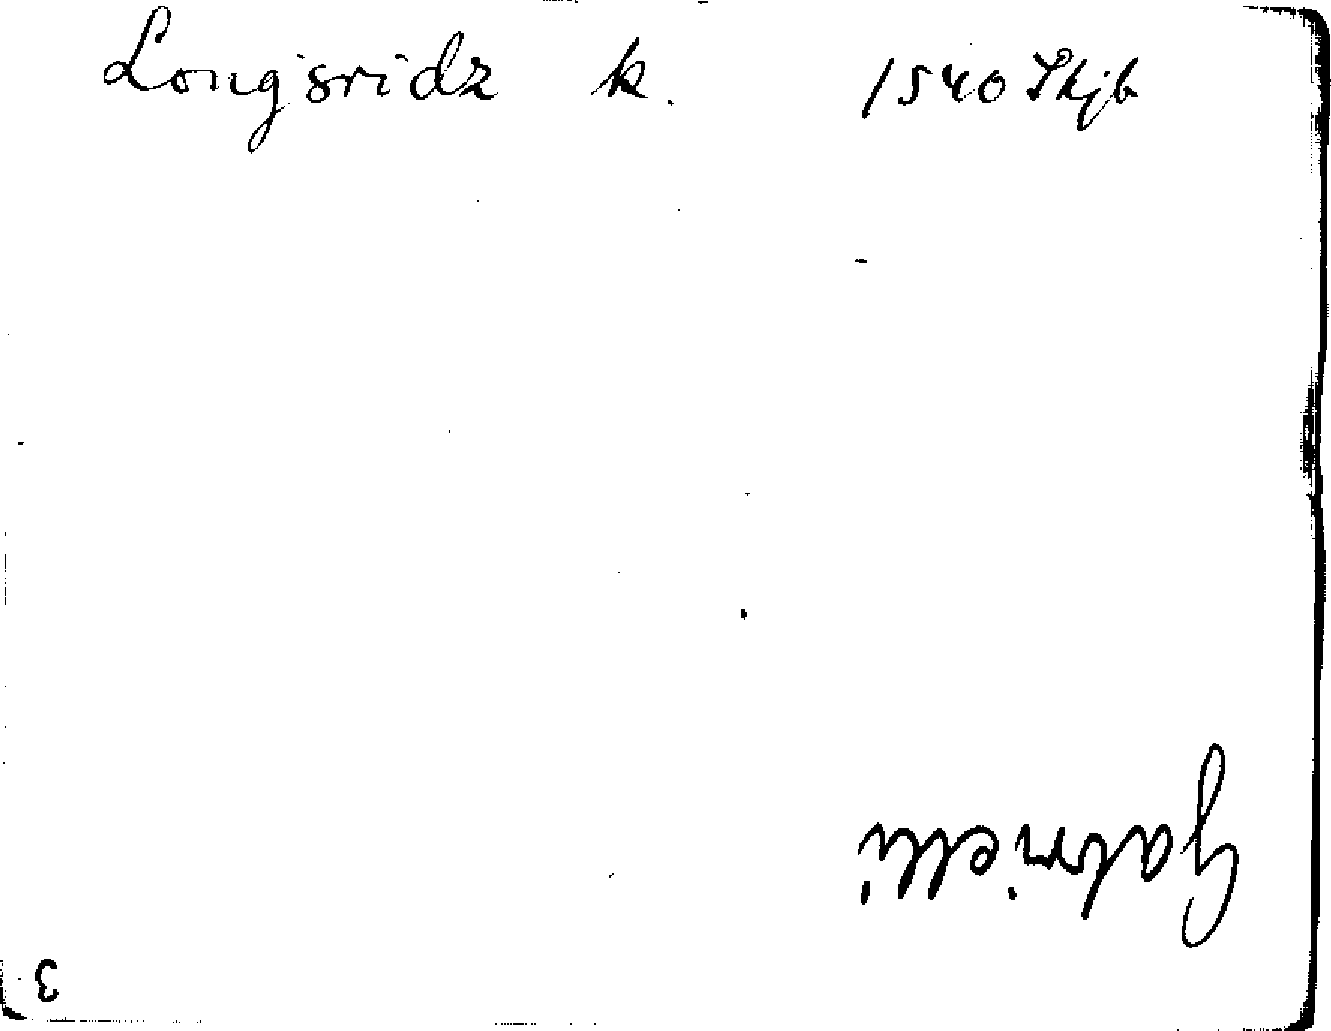 Longsridz k. 1540 Skjb
Gabrielli
3